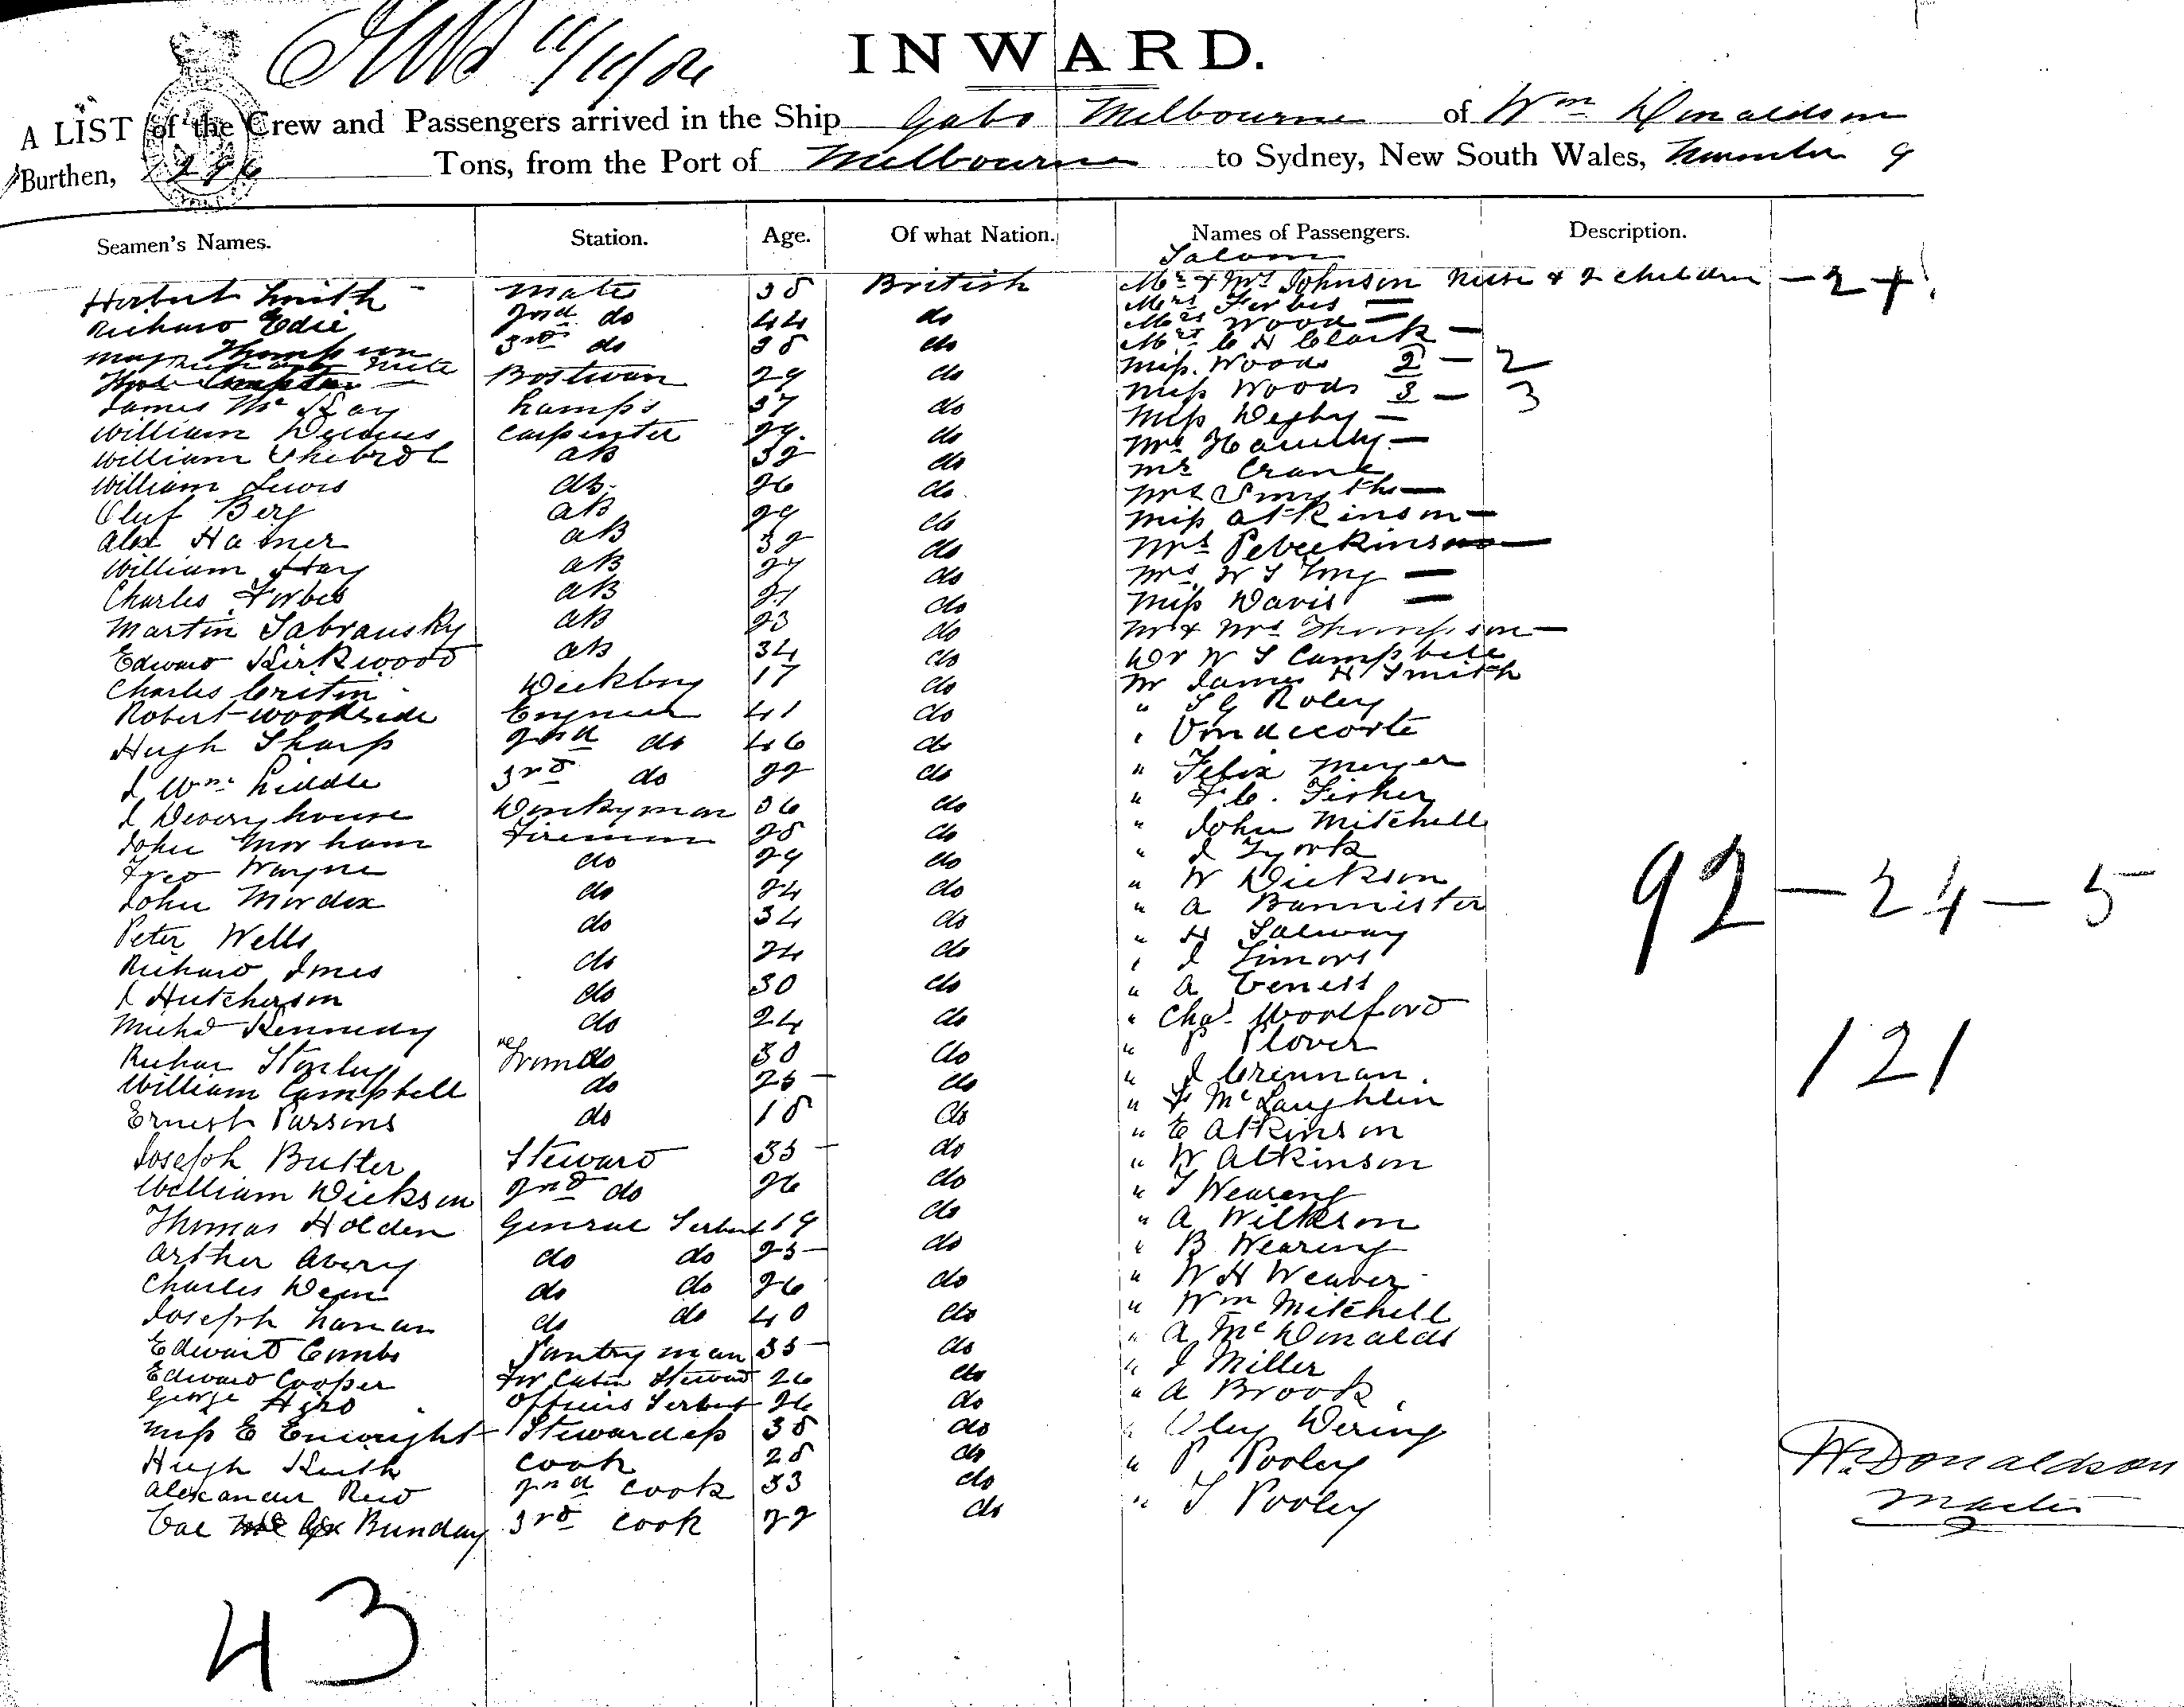 11/11/
INWARD.
A LIST of the Crew and Passengers arrived in the Ship Gabo Melbourne of Wm Donaldson
Burthen, Tons, from the Port of Melbourne to Sydney, New South Wales, November 9
Seamen's Names. Station. Age. Of what Nation. Names of Passengers. Description.
Saloon
Herbert Smith Mate 38 British Mr & Mrs Johnson Nurse & 2 children - 2
Richard Edie 2nd do 44 do Mrs Forbes
Thompson 3rd do 38 do Mrs Wood
Mrs C H Clark
Bostwan 29 do Miss Woods 2 - 2
James McKay Lamps 37 do Miss Woods 3 - 3
William Carpenter 29 do Miss Degby
William AB 32 do Mrs
William Lewis AB 26 do Mr Crane
Oluf Berg AB 29 do Mrs Smythe
Alex Hamer AB 32 do Miss Atkinson
William Hay AB 27 do Mrs
Charles Forbes AB 21 do Mrs W S
Martin Sabransky AB 23 do Miss Davis
Edward Kirkwood AB 34 do Mr & Mrs Thompson
Charles Deckboy 17 do Dr W S Campbell
Robert Woodside Engineer 41 do Mr James H Smith
Hugh Sharp 2nd do 46 do " S G Roley
J Wm Liddle 3rd do 22 do " Vondecorte
J Deveryhouse Donkyman 36 do " Felix Meyer
John Morham Fireman 28 do " F C. Fisher
Fred Wayne do 29 do " John Mitchell
John Mordex do 24 do " J York
Peter Wells do 34 do " W Dickson
Richard Imes do 24 do " A Bannister
J Hutcherson do 30 do " H Salway
Michd Kennedy do 24 do " J Simons
Richar Stonley Trim do 30 do " A Geness
William Campbell do 25 do " Chas Woolford
Ernest Parsons do 18 do " P Plover
Joseph Butter Steward 35 do " J Crennan.
William Dickson 2nd do 26 do " F McLaughlin
Thomas Holden General Serbent 19 do " E Atkinson
Arther Avery do do 25 do " W Atkinson
Charles Dean do do 26 do " T Wearing
Joseph Lanan do do 40 do " A Wilkson
Edward Combs Pantryman 35 do " B Wearing
Edward Cooper For Cabin Steward 26 do " W H Weaver
George Officers Serbent 26 do " Wm Mitchell
Miss E Enwright Stewardess 38 do " A McDonald
Hugh Keith Cook 28 do " J Miller
Alexander Reid 2nd Cook 33 do " A Brook
Bunday 3rd Cook 22 do " Oley Dering
" P Pooley
" T Pooley
92 - 24 - 5
121
W. Donaldson
Master
43